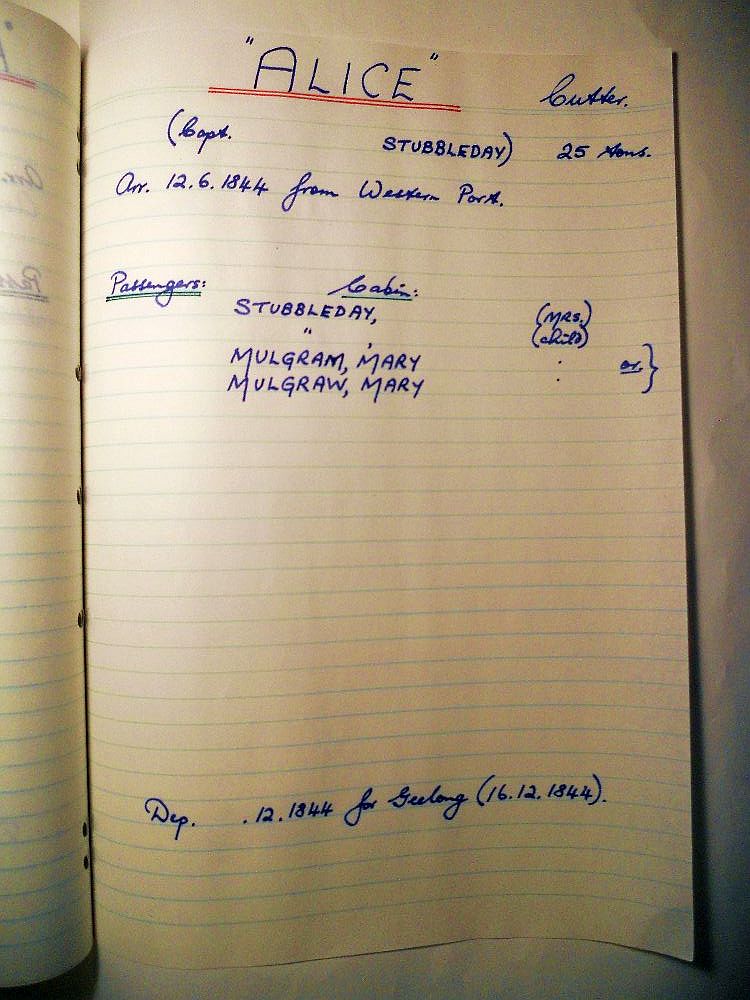 "ALICE" Cutter.
(Capt. STUBBLEDAY) 25 tons.
Arr. 12.6.1844 from Western Port.
Passengers: Cabin:
STUBBLEDAY, (MRS.)
" , (child)
MULGRAM, MARY . or }
MULGRAW, MARY .
Dep. .12.1844 for Geelong (16.12.1844).